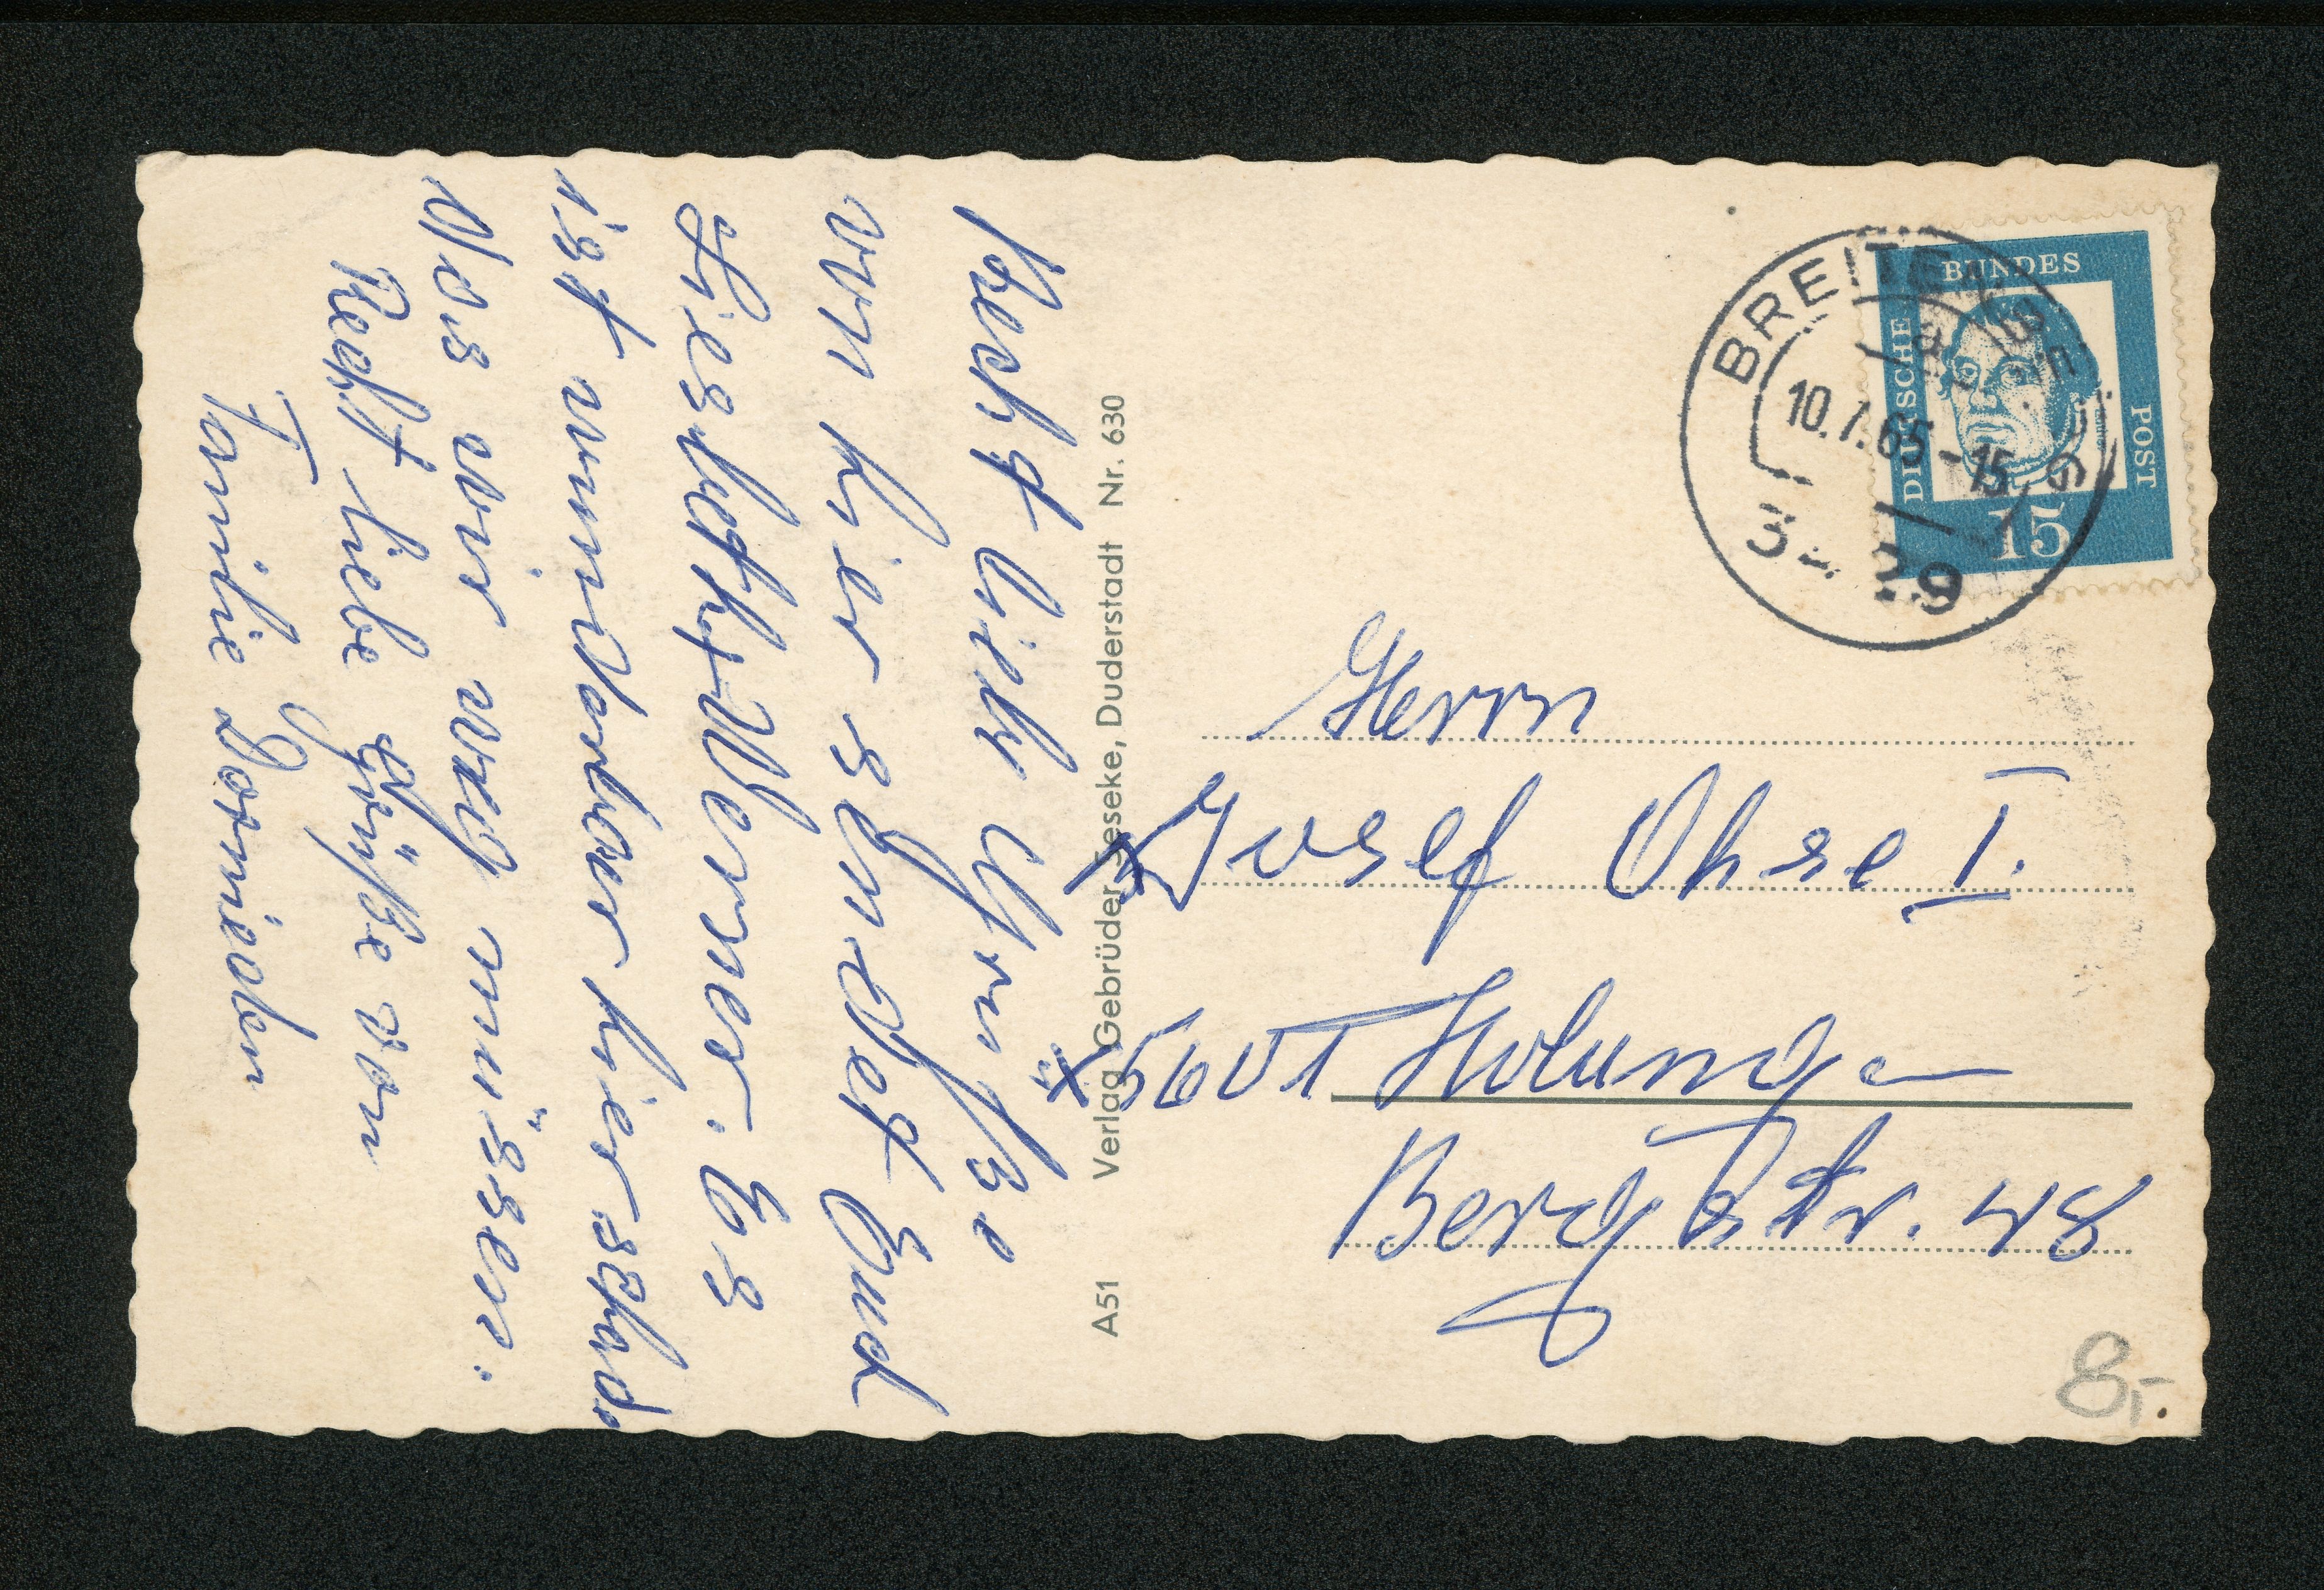 Recht liebe Grüße
von hier sendet Eud
Liesloth, Werner. Es
ist wunderbar hier schade
das wir weg müssen.
Recht liebe Grüße von
Familie Dornieden
A51 Verlag Gebrüder Seseke, Duderstadt Nr. 630
BUNDES
DEUTSCHE
POST
15
BREITENBE
10.7.65-15
Herrn
Josef Ohse I.
5601 Holungen
Bergstr. 48
8,-